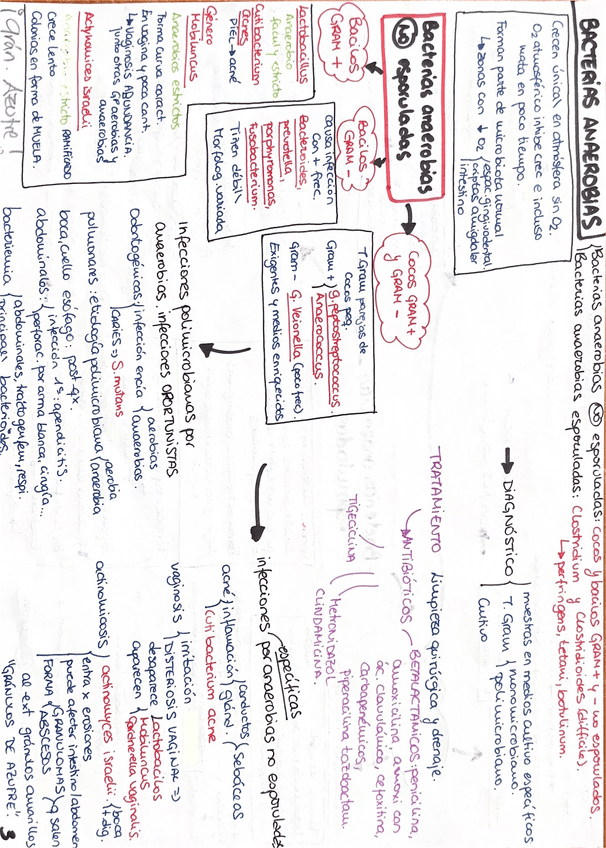 BACTERIAS ANAEROBIAS
Bacterias anaerobias NO esporuladas: Cocos y bacilos GRAM + y - no esporulados.
Bacterias anaerobias esporuladas: Clostridium y Clostridioides (difficile).
↳ perfringens, tetani, botulinum.
Crecen únical en atmósfera sin O2.
O2 atmosférico inhibe crec e incluso
mata en poco tiempo.
Forman parte de microbiota normal
↳ zonas con ↓ O2
espac. gingivodental.
criptas amigdalar
intestino
→ DIAGNÓSTICO
muestras en medios cultivo específicos
T. Gram
monomicrobiano.
polimicrobiano.
Cultivo
Bacterias anaerobias
NO esporuladas
Bacilos
GRAM +
Bacilos
GRAM -
COCOS GRAM +
y GRAM -
TRATAMIENTO Limpieza quirúrgica y drenaje.
ANTIBIÓTICOS
BETALACTÁMICOS: penicilina,
amoxicilina, amoxi con
ac. clavulánico, cefoxitina,
carbapenémicos,
Piperacilina tazobactam.
Metronidazol
CLINDAMICINA.
TIGECICLINA
Lactobacillus
Anaerobio
facul y estricto
Cutibacterium
acnes
PIEL → acné
Género
Mobiluncus
Anaerobios estrictos
forma curva caract.
En vagina y poca cant.
↳ vaginosis ABUNDANCIA
junto otras GP aerobias y
anaerobias
Actynomices israelii
estricto RAMIFICADO
Crece lento
Colonias en forma de MUELA.
"grán. Azufre"
causa infección
con + frec.
Bacteroides,
prevotella,
porphyromonas,
Fusobacterium.
Tiñen débil.
Morfolog. variada
T. Gram parejas de
cocos peq.
Gram + g. peptostreptococcus.
Anaerococcus.
Gram - G. Veionella (poco frec).
Exigentes y medios enriquecidos
Infecciones polimicrobianas por
anaerobias, infecciones OPORTUNISTAS
Odontogénicas: infección encía
aerobias
anaerobias.
CARIES → S. mutans
pulmonares: etiología polimicrobiana
aerobia
anaerobia
boca, cuello esófago: post qx.
abdominales:
infección 1ª: apendicitis.
perforac. por arma blanca, cirugía...
bacteriemia
abdominales, tracto genfem, respi.
principal bacteroides.
infecciones específicas
por anaerobias no esporulades
acné
inflamación gland.
conductos
Sebáceas
Cutibacterium acne
vaginosis
irritación
DISTERIOSIS VAGINAL →
desaparece Lactobacilos
aparecen
Mobiluncus
Gardnerella vaginalis.
actinomicosis
actinomyces israelii.
boca
t. dig.
entra x erosiones
puede afectar intestino/abdomen
FORMA
GRANULOMAS
ABSCESOS
q salen
al ext gránulos amarillos
"GRÁNULOS DE AZUFRE".
3